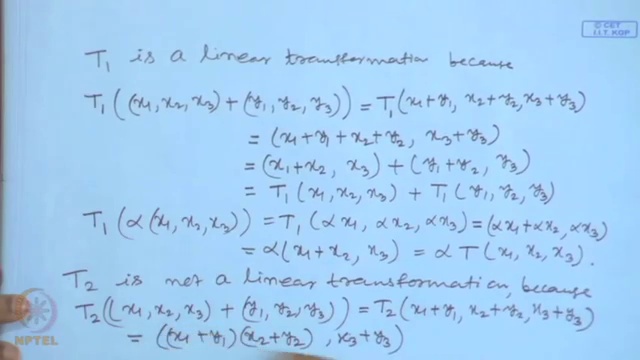 © CET
I.I.T. KGP
T₁ is a linear transformation because
T₁((x₁, x₂, x₃) + (y₁, y₂, y₃)) = T₁(x₁+y₁, x₂+y₂, x₃+y₃)
= (x₁+y₁+x₂+y₂, x₃+y₃)
= (x₁+x₂, x₃) + (y₁+y₂, y₃)
= T₁(x₁, x₂, x₃) + T₁(y₁, y₂, y₃)
T₁(α(x₁, x₂, x₃)) = T₁(αx₁, αx₂, αx₃) = (αx₁+αx₂, αx₃)
= α(x₁+x₂, x₃) = αT(x₁, x₂, x₃).
T₂ is not a linear transformation, because
T₂((x₁, x₂, x₃) + (y₁, y₂, y₃)) = T₂(x₁+y₁, x₂+y₂, x₃+y₃)
= ((x₁+y₁)(x₂+y₂), x₃+y₃)
NPTEL